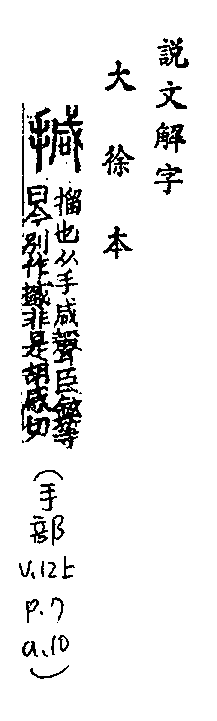 説文解字
大徐本
㨔 摍也从手咸聲臣鉉等
曰今別作撼非是胡感切
(手部
v.12上
p.7
a.10)